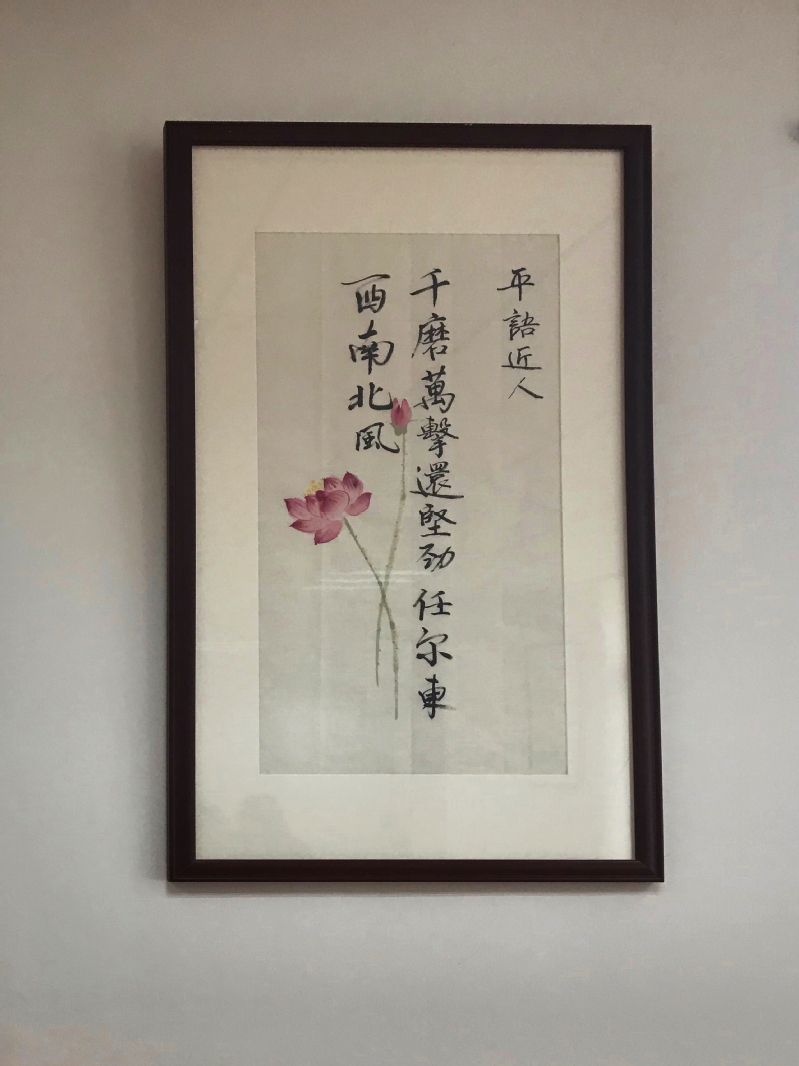 平語近人
千磨萬擊還堅勁 任尔東
西南北風